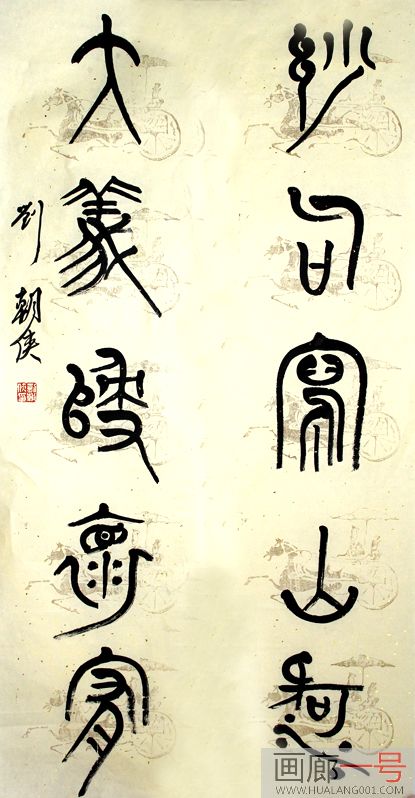 妙句寫山河
大義
劉朝侠
画廊一号
WWW.HUALANG001.COM